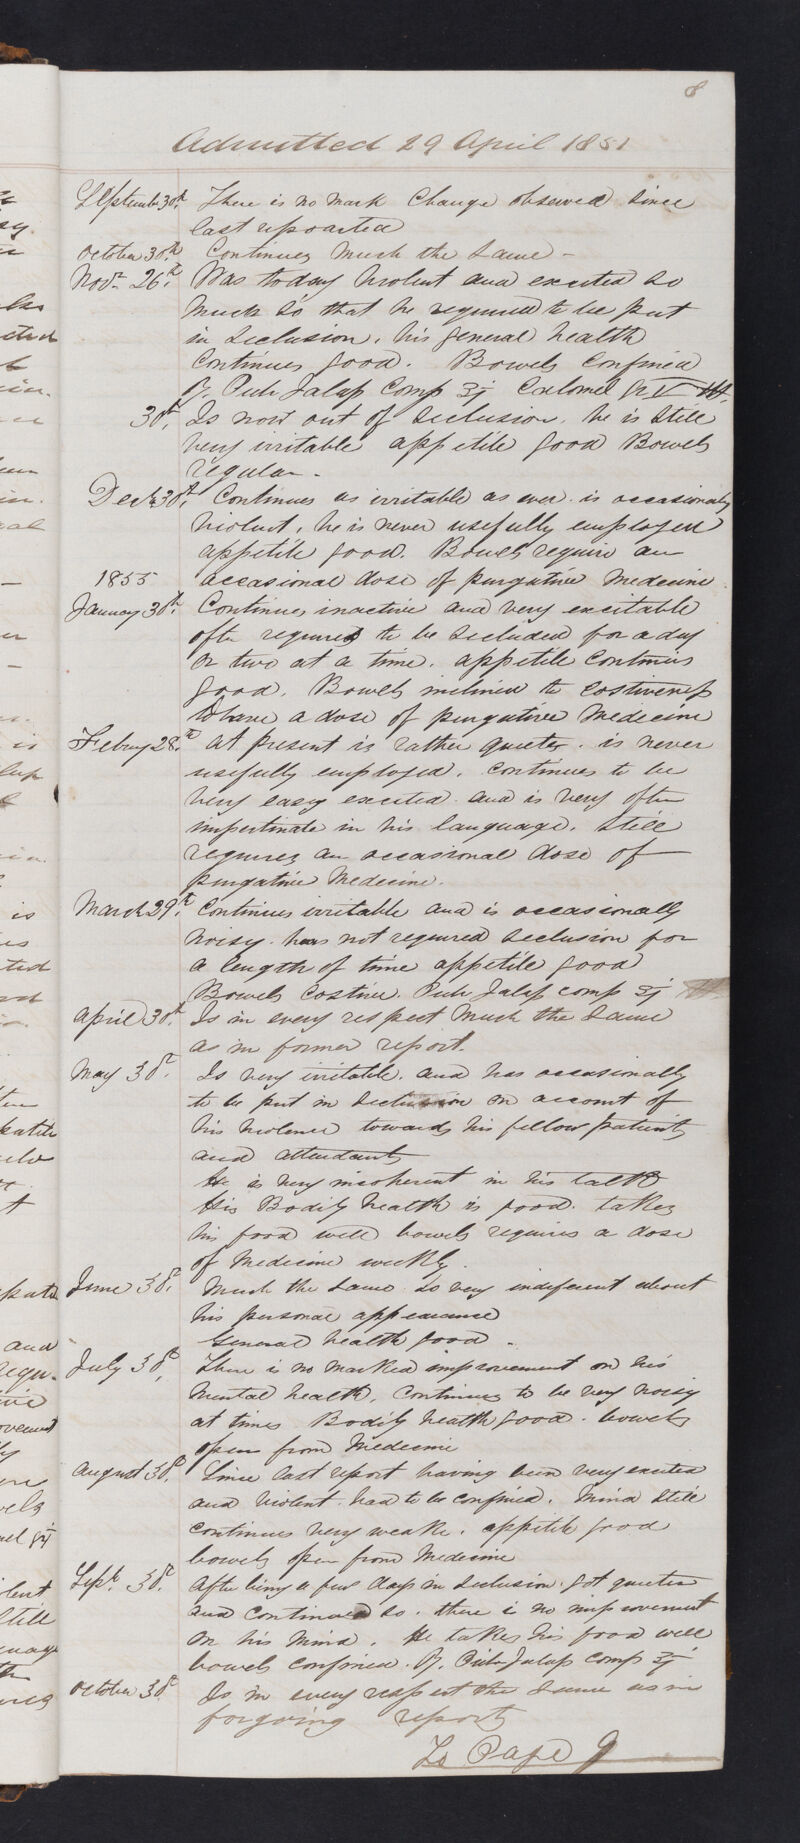 8
Admitted 29 April 1851
September 30th. There is no mark Change observed since
last repoarted
October 30th Continues Much the Same –
Novr 26th. Was today violent and excited so
Much so that he required to be put
in Seclusion. his general health
Continues good. Bowels Confined
Pulv Jalap Comp ʒj Calomel gr V
30th. Is now out of Seclusion. he is Still
very irritable appetite good Bowels
regular.
Decbr 30th. Continues as irritable as ever. is occasionaly
violent. he is never usefully employed
appetite good. Bowels require an
1855 occasional dose of purgative Medecine.
January 30th. Continues inactive and very excitable
ofte requires to be Secluded for a day
or two at a time. appetite Continues
good. Bowels inclined to costiveness
to have a dose of purgative Medecine
Febury 28th. at present is rather quieter. is never
usefully employed. continues to be
very easy excited. and is very often
impertinate in his language. Still
requires an occassional dose of
purgative Medecine.
March 29th. Continues irritable and is occasionally
Noisy. has not required Seclusion for
a length of time appetite good
Bowels Costive. Pulv Jalap comp ʒj
April 30th. Is in every respect Much the Same
as in former report.
May 30th. Is very irritable. and has occasionally
to be put in Seclusion on account of
his violence towards his fellow patients
and attendants
He is very incoherent in his talk
His Bodily health is good. takes
his food well bowels requires a dose
of Medecine weekly.
June 30th. Much the Same is very indiferent about
his personal appearance
General health good –
July 30th. There is no marked improvement on his
Mental health. Continues to be very noisy
at times Bodily health good. bowels
open from Medecine
August 30th. Since last report having been very excited
and violent. had to be confined. Mind Still
continues very weake. appetite good
bowels open from Medecine
Septr. 30th. After being a few days in Seclusion. got quieter
and continued so. there is no improvement
on his mind. He takes his food well
bowels confined. Pulv Jalap Comp ʒj
October 30th Is in every respect the Same as in
forgoing reports
To Page 9